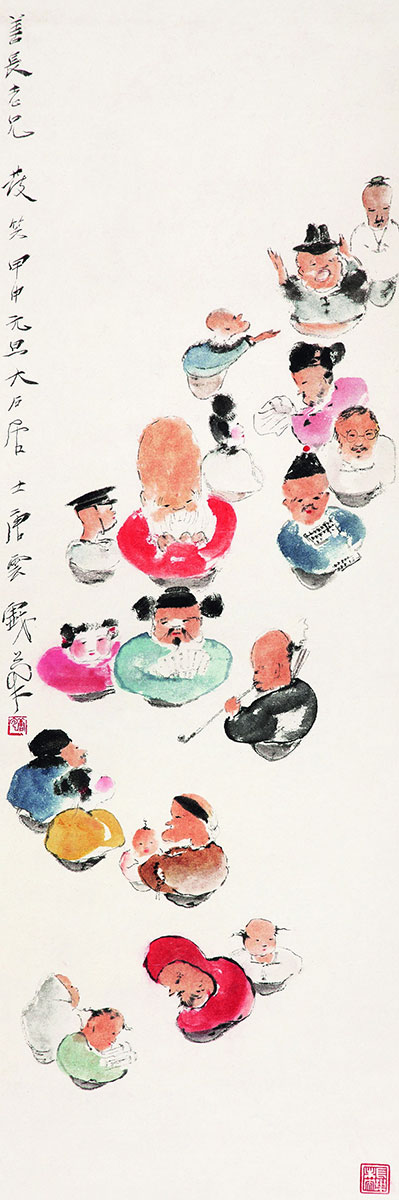 善長老兄 發笑 甲申元旦大石居士唐雲戲筆